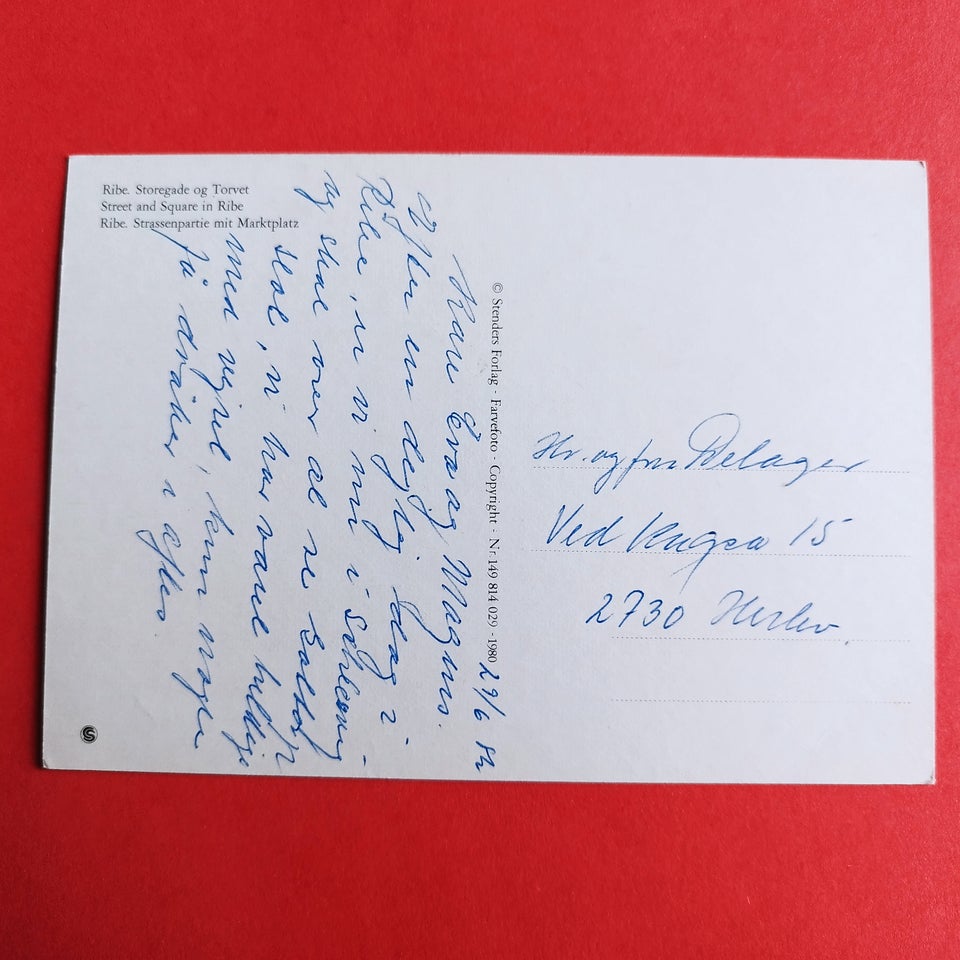 Ribe. Storegade og Torvet
Street and Square in Ribe
Ribe. Strassenpartie mit Marktplatz
© Stenders Forlag - Farvefoto - Copyright - Nr. 149 814 029 - 1980
29/6
Kære Eva og Magnus.
Efter en dejlig dag i
Ribe, er vi nu i
og skal over at se
slot, vi har været heldige
med vejret, kun nogle
få dråber i aftes
Hr. og fru Delager
Ved 15
2730 Herlev.